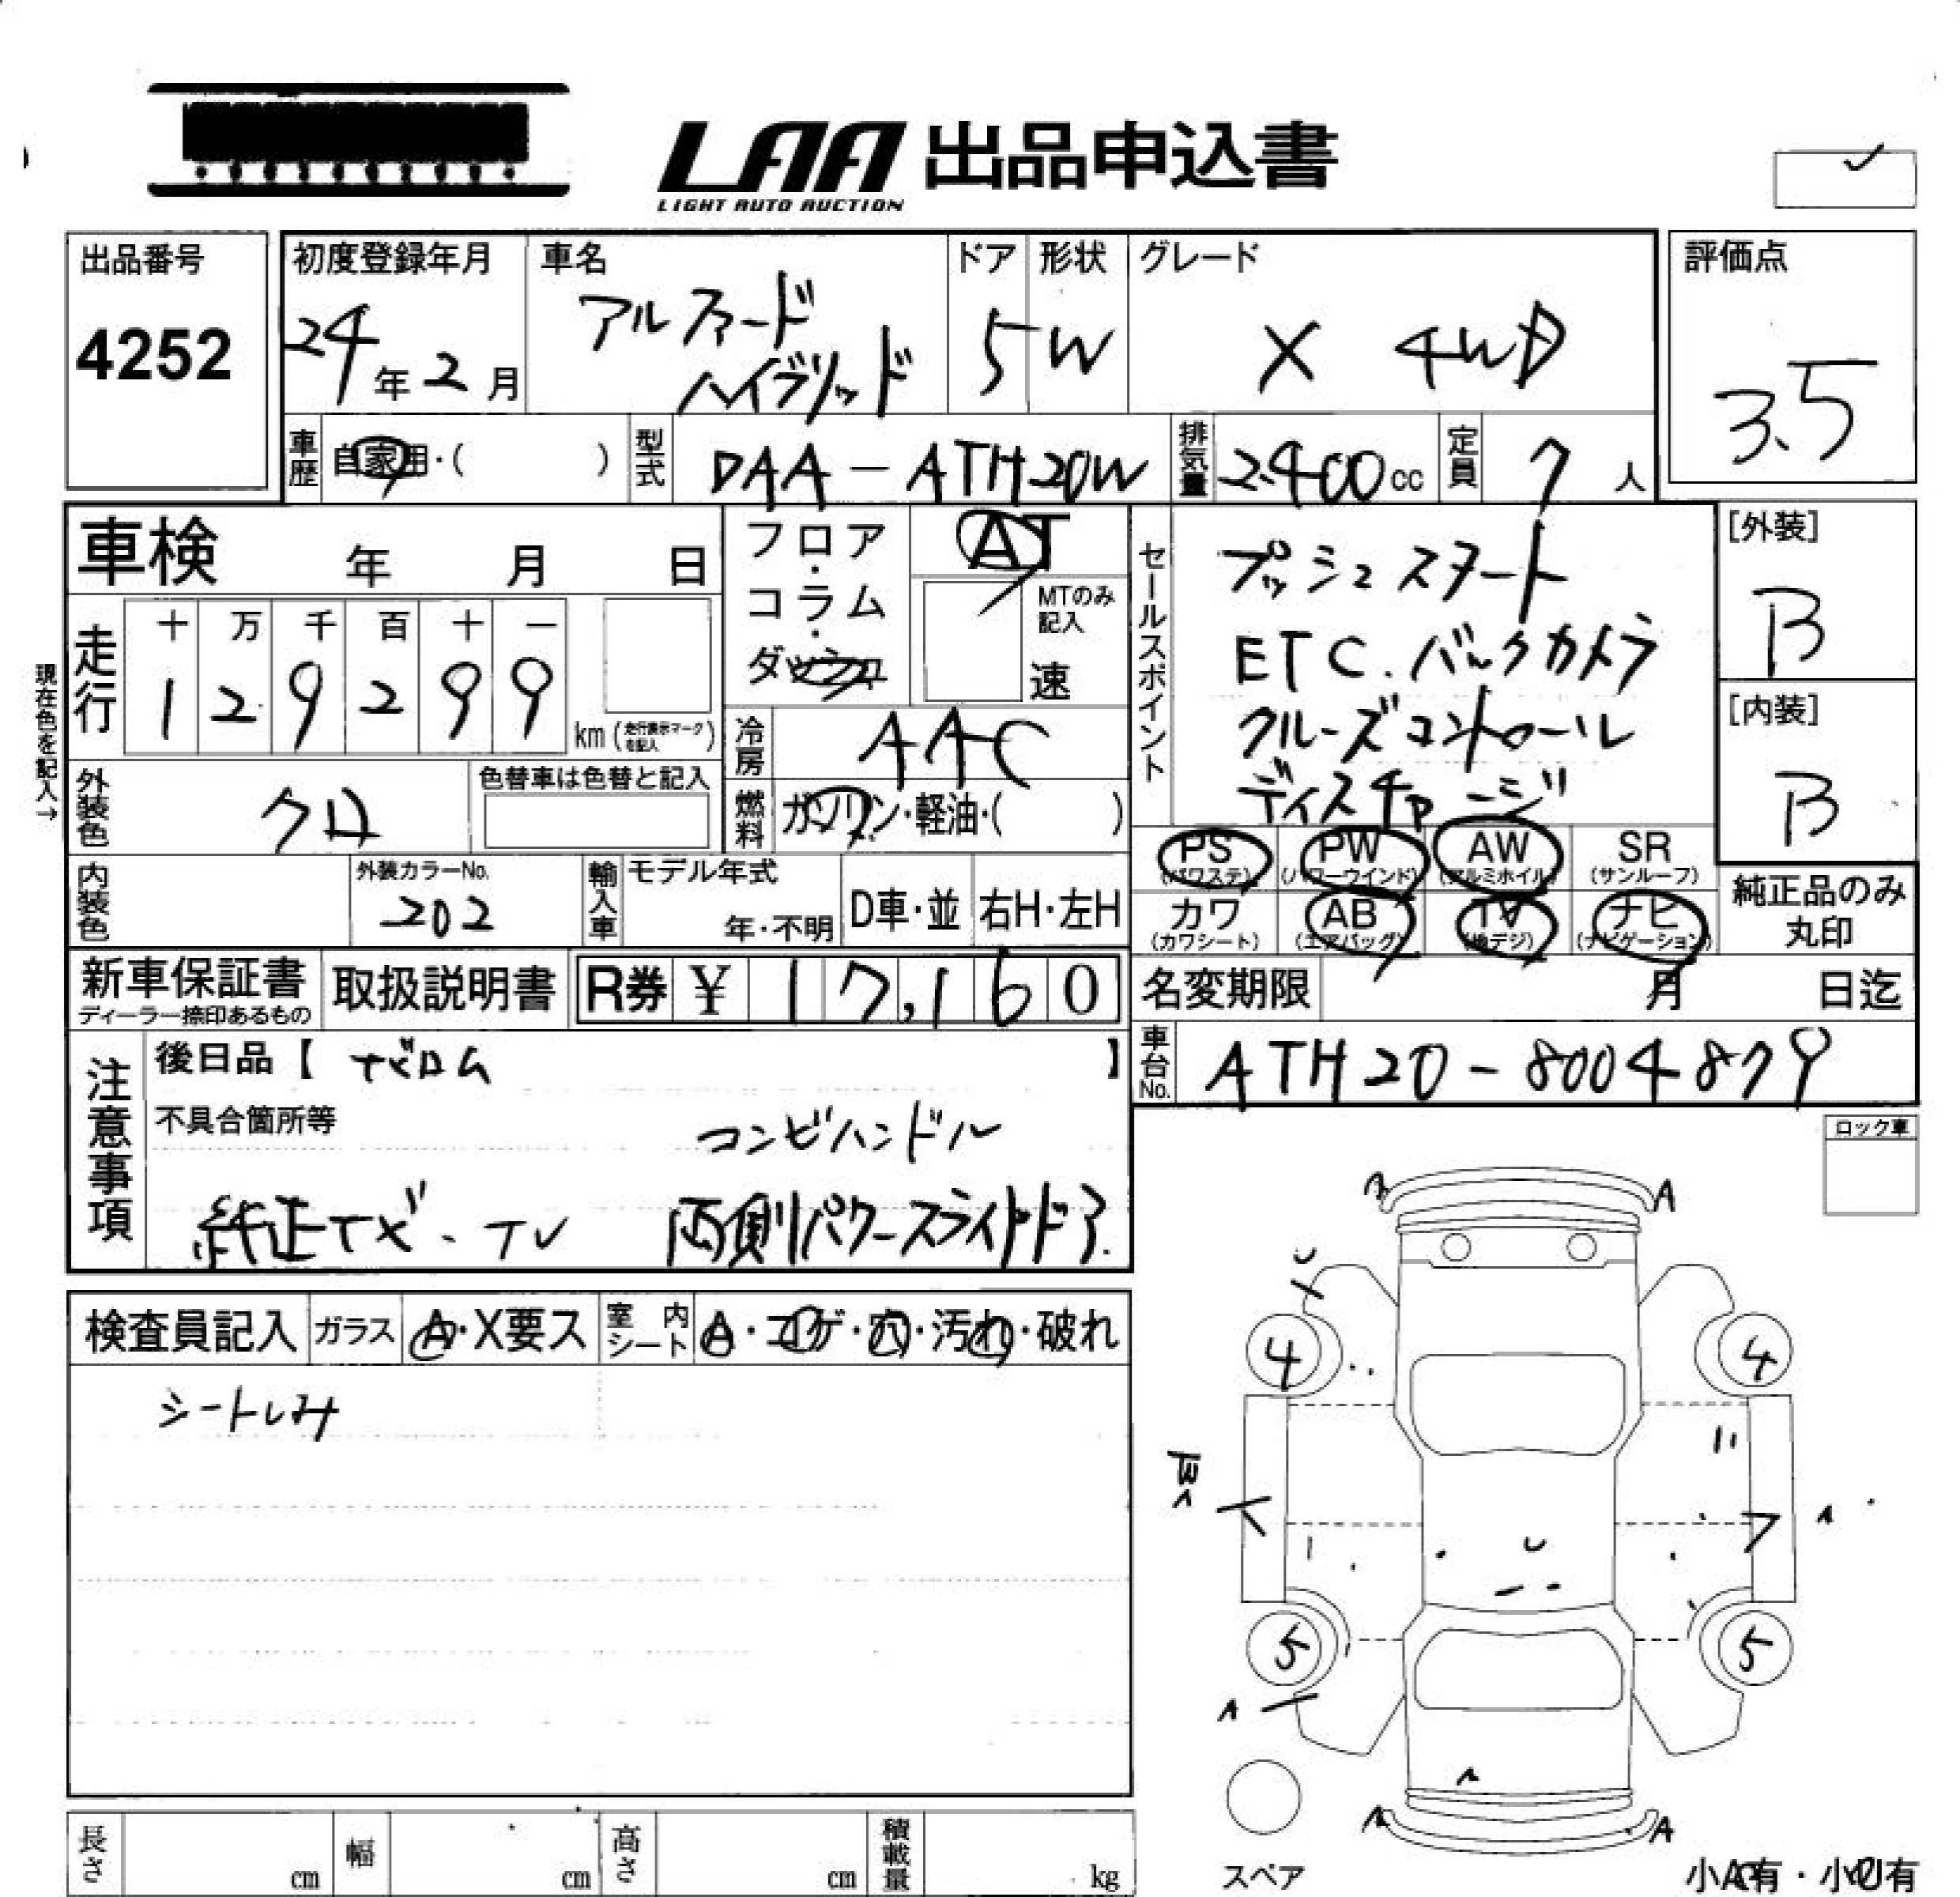 LAA 出品申込書
LIGHT AUTO AUCTION
出品番号
4252
初度登録年月
24年2月
車名
アルファード
ハイブリッド
ドア
5
形状
W
グレード
X 4WD
評価点
3.5
車歴 自家用・( )
型式 DAA-ATH20W
排気量 2400cc
定員 7人
車検 年 月 日
フロア・コラム・ダッシュ
AT
MTのみ記入
速
セールスポイント
プッシュスタート
ETC.バックカメラ
クルーズコントロール
ディスチャージ
[外装]
B
[内装]
B
現在色を記入→
走行
十 万 千 百 十 一
1 2 9 2 9 9
km(走行表示マークを記入)
冷房 AAC
外装色 クロ
色替車は色替と記入
燃料 ガソリン・軽油・( )
PS (パワステ)
PW (パワーウインド)
AW (アルミホイル)
SR (サンルーフ)
カワ (カワシート)
AB (エアバッグ)
TV (地デジ)
ナビ (ナビゲーション)
純正品のみ
丸印
内装色
外装カラーNo.
202
輸入車
モデル年式
年・不明
D車・並
右H・左H
新車保証書
ディーラー捺印あるもの
取扱説明書
R券 ¥ 17,160
名変期限 月 日迄
車台No. ATH20-8004879
注意事項
後日品【 ナビロム 】
不具合箇所等
コンビハンドル
純正ナビ・TV 両側パワースライドドア
ロック車
検査員記入
ガラス A・X要ス
室内シート A・コゲ・穴・汚れ・破れ
シートしみ
A
A
4
4
5
5
A
A
スペア
長さ cm
幅 cm
高さ cm
積載量 kg
小A有・小U有